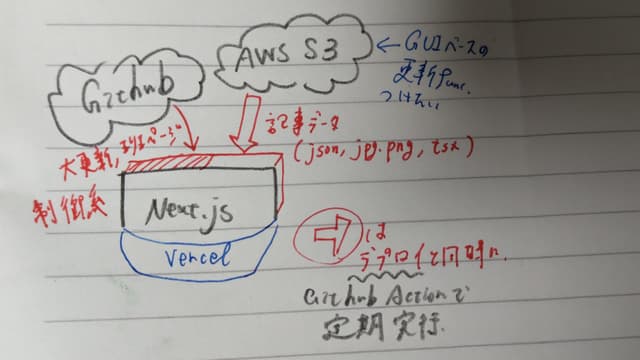 Github
AWS S3
←GUIベースの
更新func.
つけたい
大更新,
記事データ
(json, jpg.png, tsx)
制御系
Next.js
Vercel
⇨は
デプロイと同時に
Github Actionで
定期実行.